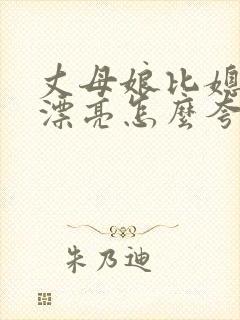 丈母娘比媳
漂亮怎麼夸
朱乃迪